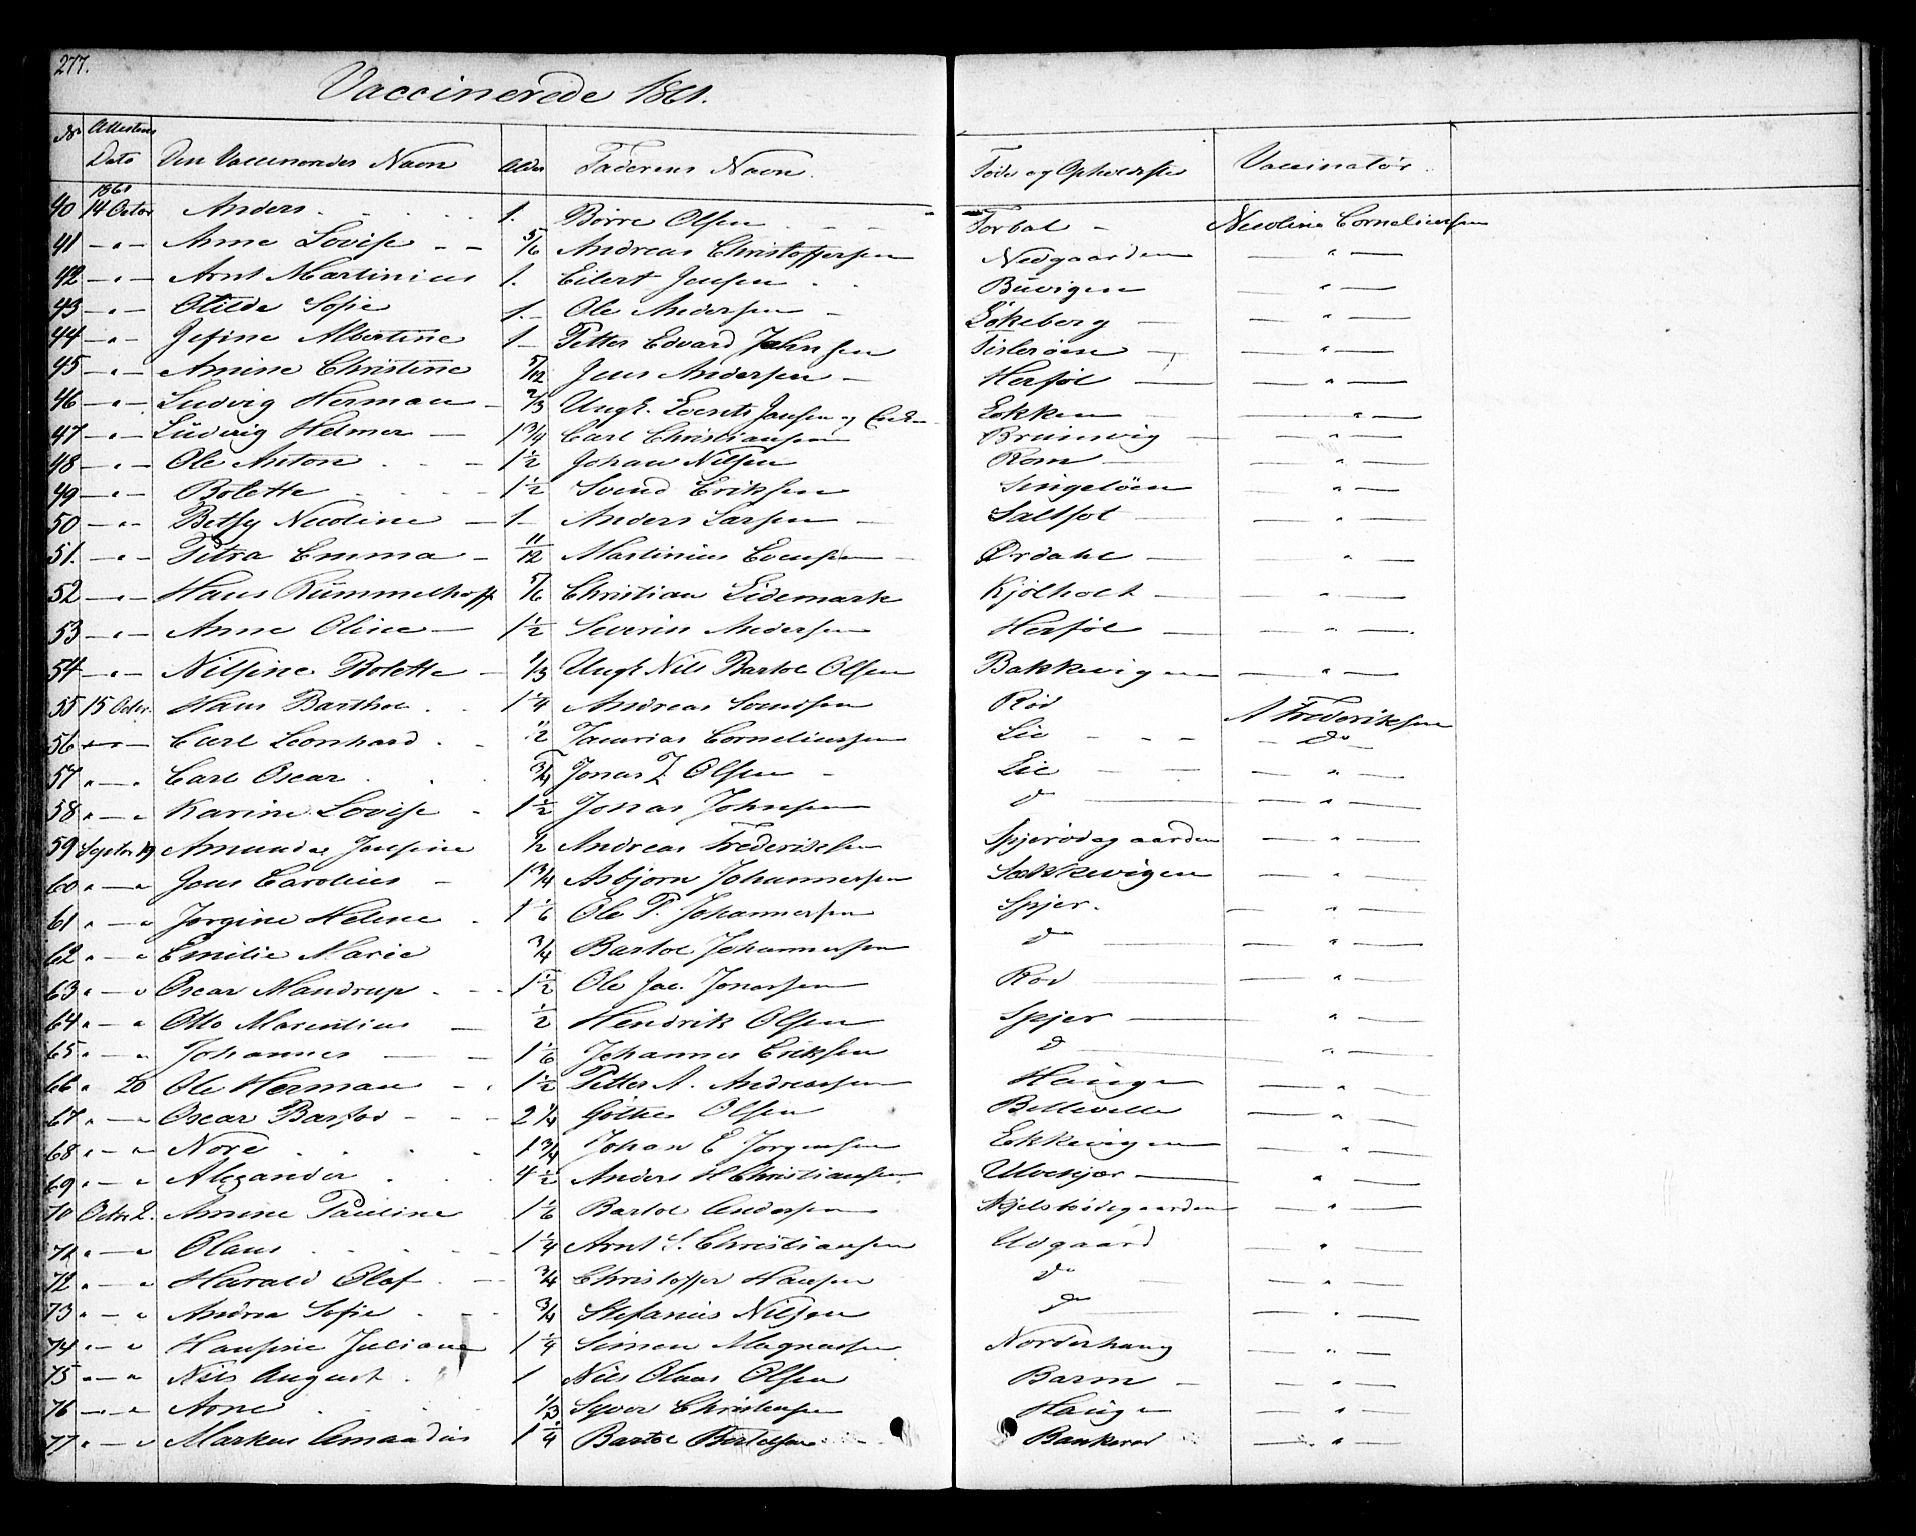 277.
Vaccinerede 1861.
No Attestens Dato Den Vaccineredes Navn Alder Faderens Navn. Føde og Opholdsste Vaccinatør.
1861
40 14 Octbr Anders 1. Børre Olsen Torbal Nicoline Corneliussen
41 " Anne Lovise 5/6 Andreas Christoffersen Nedgaarden "
42 " Arnt Martinius 1. Eilert Jensen Buvigen "
43 " Otilde Sofie 1. Ole Andersen Løkeberg "
44 " Jefine Albertine 1 Petter Edvard Jahnsen Tislerøen "
45 " Amine Christine 5/12 Jens Andersen Herføl "
46 " Ludvig Herman 2/3 Ungk. Evensts Jansen og Løkken "
47 " Ludvig Helmer 1 3/4 Carl Christiansen Bruunvig "
48 " Ole Anton 1 1/2 Johan Nilsen Rom "
49 " Bolette 1 1/2 Svend Eriksen Singeløen "
50 " Betsy Nicoline 1 Anders Larsen Saltfot "
51. " Petra Emma 11/12 Martinius Evensen Ørdahl "
52 " Hans Rümmelhoff 5/6 Christian Lidemark Kjølholt "
53 " Anne Oline 1 1/2 Severin Andersen Herføl "
54 " Nilsine Bolette 1/3 Ungk Nils Bartol Olsen Bakkevigen "
55 15 Octbr. Hans Barthol 1 1/4 Andreas Svendsen Rød A Frederiksen
56 " Carl Leonhard 1/2 Zacarias Corneliussen Lie do
57 " Carl Oscar 3/4 Jonas Z Olsen Lie "
58 " Karine Lovise 1 1/2 Jonas Johnsen do "
59 Septbr 19 Amunda Josefine 1/2 Andreas Frederiksen Spjærødegaarden "
60 " Jens Carolius 1 3/4 Asbjørn Johannessen Sækkevigen "
61 " Jørgine Helene 1 1/6 Ole P. Johannessen Spjer. "
62 " Emilie Marie 3/4 Bartol Johannessen do "
63 " Oscar Mandrup 1 1/2 Ole Jac. Jonassen Rød "
64 " Otto Marentius 1/2 Hendrik Olsen Spjer "
65 " Johannes 1 1/6 Johannes Eriksen do "
66 " 20 Ole Herman 1 1/2 Petter A. Andreassen Haugen "
67 " Oscar Barfod 2 1/4 Göthe Olsen Bellevelle "
68 " Nore 1 3/4 Johan E Jørgensen Ekkevigen "
69 " Alexander 4 1/2 Anders H Christiansen Ulvekjær "
70 Octbr 2. Amine Pauline 1 1/6 Bartol Andersen Skjelsbødegaarden "
71 " Olaus 1 1/4 Arnt S. Christiansen Udgaard "
72 " Harald Olaf 3/4 Christoffer Hansen do "
73 " Andrea Sofie 3/4 Stefanius Nilsen do "
74 " Hansine Juliane 1 1/4 Simen Magnussen Norderhaug "
75 " Nils August 1 Nils Olaus Olsen Barm "
76 " Arne 1/3 Syver Christensen Haugen "
77 " Markus Amandus 1 1/4 Bartol Bertelsen Bankerød "